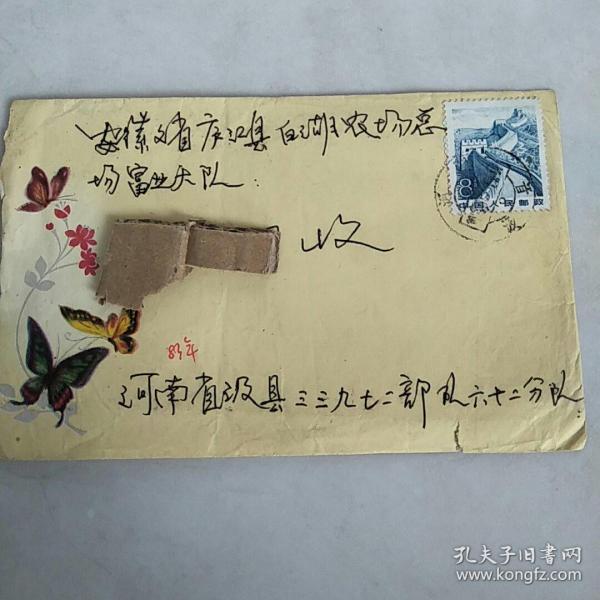 安徽省庐江县白湖农场总
场富业大队:
收
8
中国人民邮政
83年
河南省汲县三三九七二部队六十二分队
孔夫子旧书网
www.kongfz.com